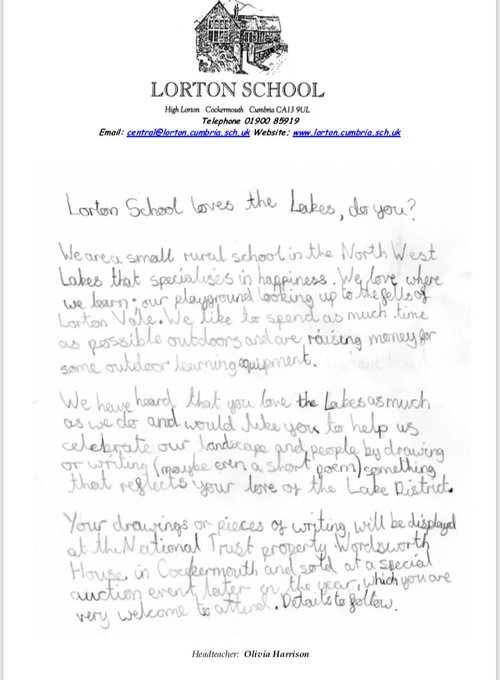 LORTON SCHOOL
High Lorton Cockermouth Cumbria CA13 9UL
Telephone 01900 85919
Email: central@lorton.cumbria.sch.uk Website: www.lorton.cumbria.sch.uk
Lorton School loves the Lakes, do you?
We are a small rural school in the North West
Lakes that specialises in happiness. We love where
we learn; our playground looking up to the fells of
Lorton Vale. We like to spend as much time
as possible outdoors and are raising money for
some outdoor learning equipment.
We have heard that you love the Lakes as much
as we do and would like you to help us
celebrate our landscape and people by drawing
or writing (maybe even a short poem) something
that reflects your love of the Lake District.
Your drawings or pieces of writing will be displayed
at the National Trust property Wordsworth
House in Cockermouth and sold at a special
auction event later in the year, which you are
very welcome to attend. Details to follow.
Headteacher: Olivia Harrison